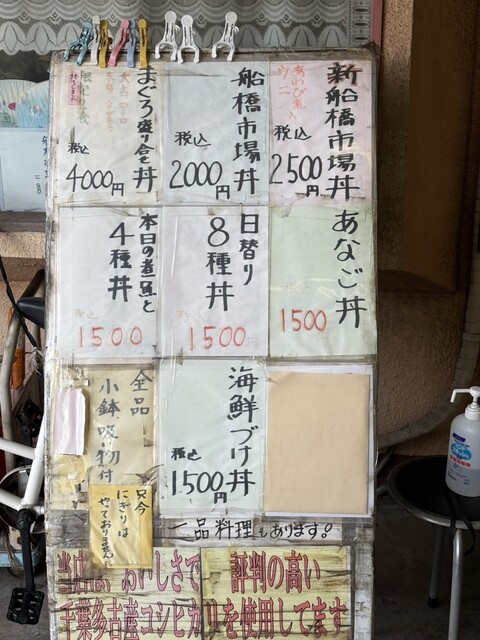 新船橋市場丼
あわび煮入
ウニ
税込
2500円
船橋市場丼
税込
2000円
まぐろ盛り合せ丼
税込
4000円
あなご丼
1500
日替り
8種丼
税込
1500
本日の煮魚と
4種丼
税込
1500
海鮮づけ丼
税込
1500円
全品
小鉢吸い物付
只今
にぎりは
やっておりません
一品料理もあります!
評判の高い
千葉多古産コシヒカリを使用してます